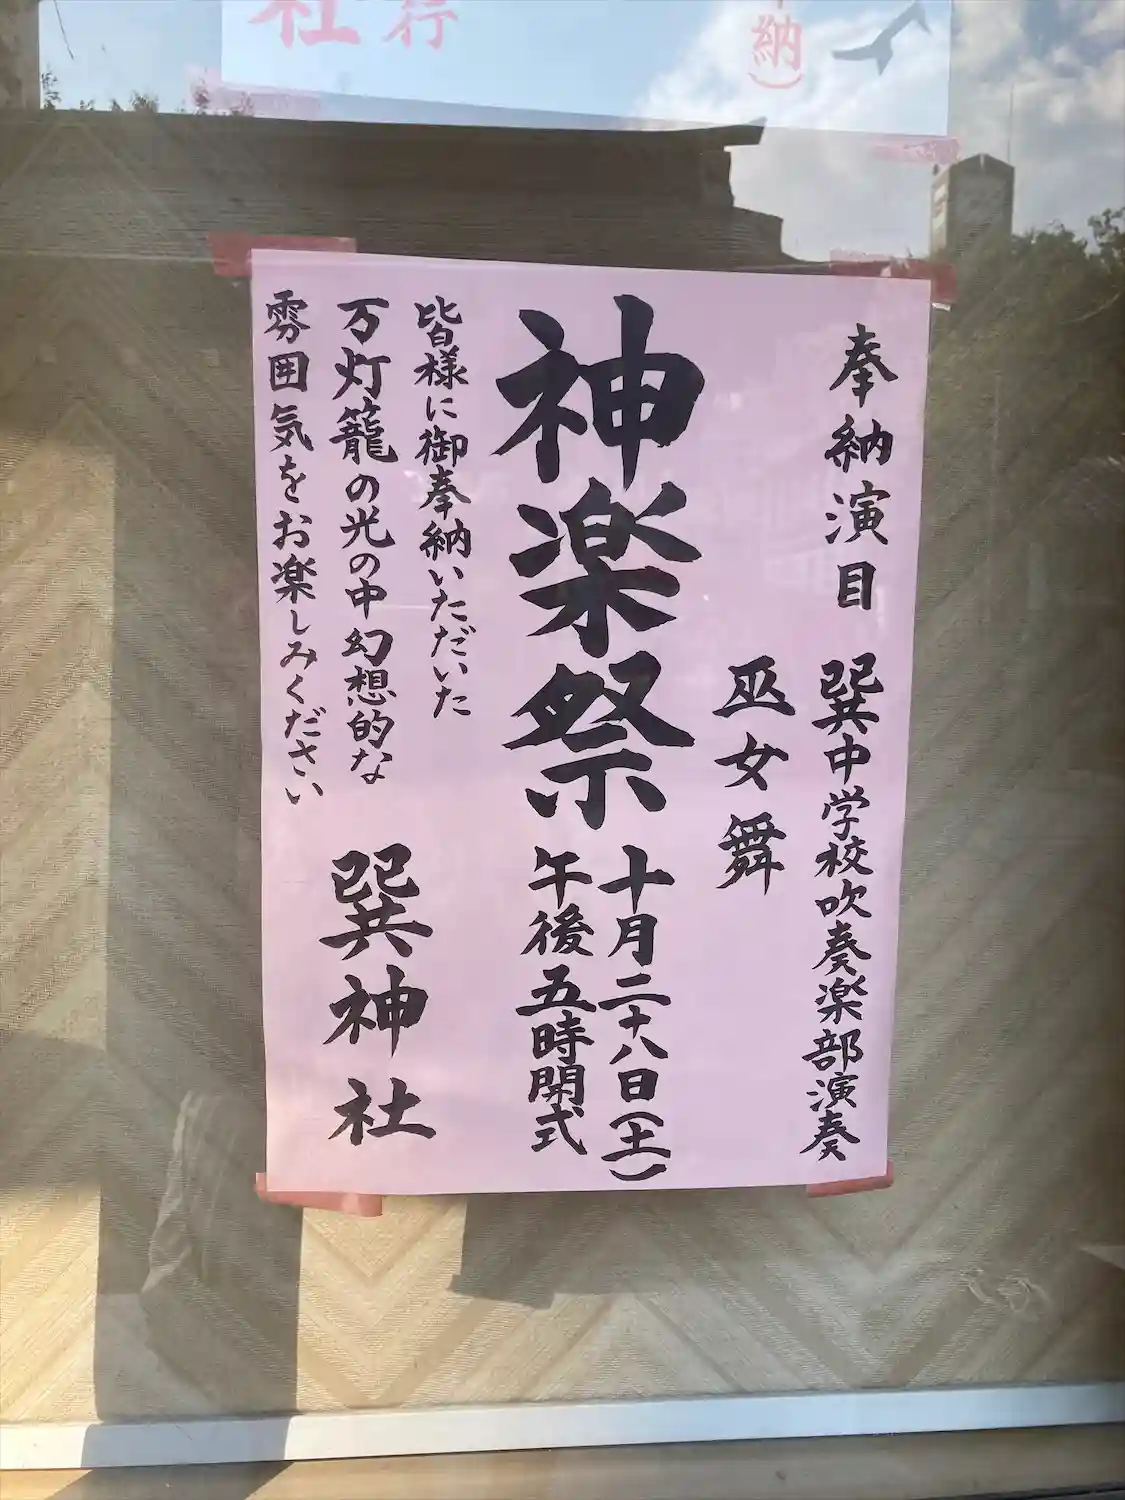 奉納演目
巽中学校吹奏楽部演奏
巫女舞
神楽祭
十月二十八日(土)
午後五時開式
皆様に御奉納いただいた
万灯籠の光の中幻想的な
雰囲気をお楽しみください
巽神社
社
行
納)